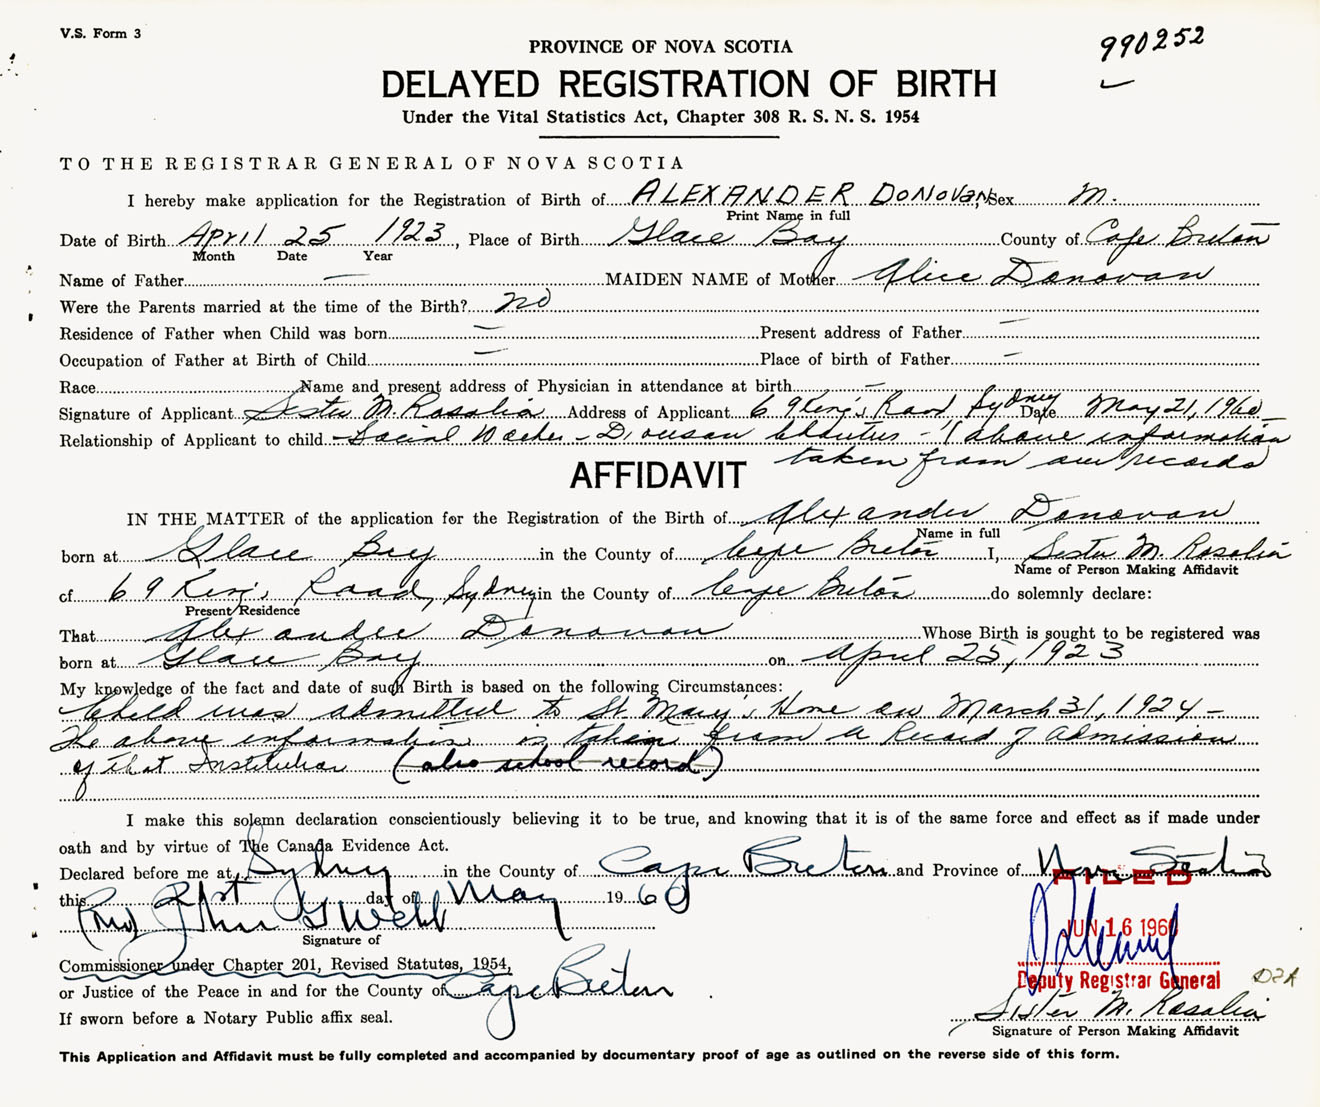 V.S. Form 3
990252
PROVINCE OF NOVA SCOTIA
DELAYED REGISTRATION OF BIRTH
Under the Vital Statistics Act, Chapter 308 R. S. N. S. 1954
TO THE REGISTRAR GENERAL OF NOVA SCOTIA
I hereby make application for the Registration of Birth of ALEXANDER DONOVAN, Sex M.
Print Name in full
Date of Birth April 25 1923, Place of Birth Glace Bay County of Cape Breton
Month Date Year
Name of Father — MAIDEN NAME of Mother Alice Donovan
Were the Parents married at the time of the Birth? no
Residence of Father when Child was born — Present address of Father —
Occupation of Father at Birth of Child — Place of birth of Father —
Race Name and present address of Physician in attendance at birth —
Signature of Applicant Sister M. Rosalia Address of Applicant 69 King's Road, Sydney Date May 21, 1960
Relationship of Applicant to child - Social Worker - Diocesan Charities - (above information
taken from our records)
AFFIDAVIT
IN THE MATTER of the application for the Registration of the Birth of Alexander Donovan
Name in full
born at Glace Bay in the County of Cape Breton I, Sister M. Rosalia
Name of Person Making Affidavit
of 69 King's Road, Sydney in the County of Cape Breton do solemnly declare:
Present Residence
That Alexander Donovan Whose Birth is sought to be registered was
born at Glace Bay on April 25, 1923
My knowledge of the fact and date of such Birth is based on the following Circumstances:
Child was admitted to St. Mary's Home on March 31, 1924 -
The above information is taken from a Record of Admission
of that Institution (also school record)
I make this solemn declaration conscientiously believing it to be true, and knowing that it is of the same force and effect as if made under
oath and by virtue of The Canada Evidence Act.
Declared before me at Sydney in the County of Cape Breton and Province of Nova Scotia
this 21st day of May 1960
FILED
(Rev) John G Webb
JUN 16 1960
Signature of
Commissioner under Chapter 201, Revised Statutes, 1954,
Deputy Registrar General
or Justice of the Peace in and for the County of Cape Breton
Sister M. Rosalia
If sworn before a Notary Public affix seal.
Signature of Person Making Affidavit
This Application and Affidavit must be fully completed and accompanied by documentary proof of age as outlined on the reverse side of this form.